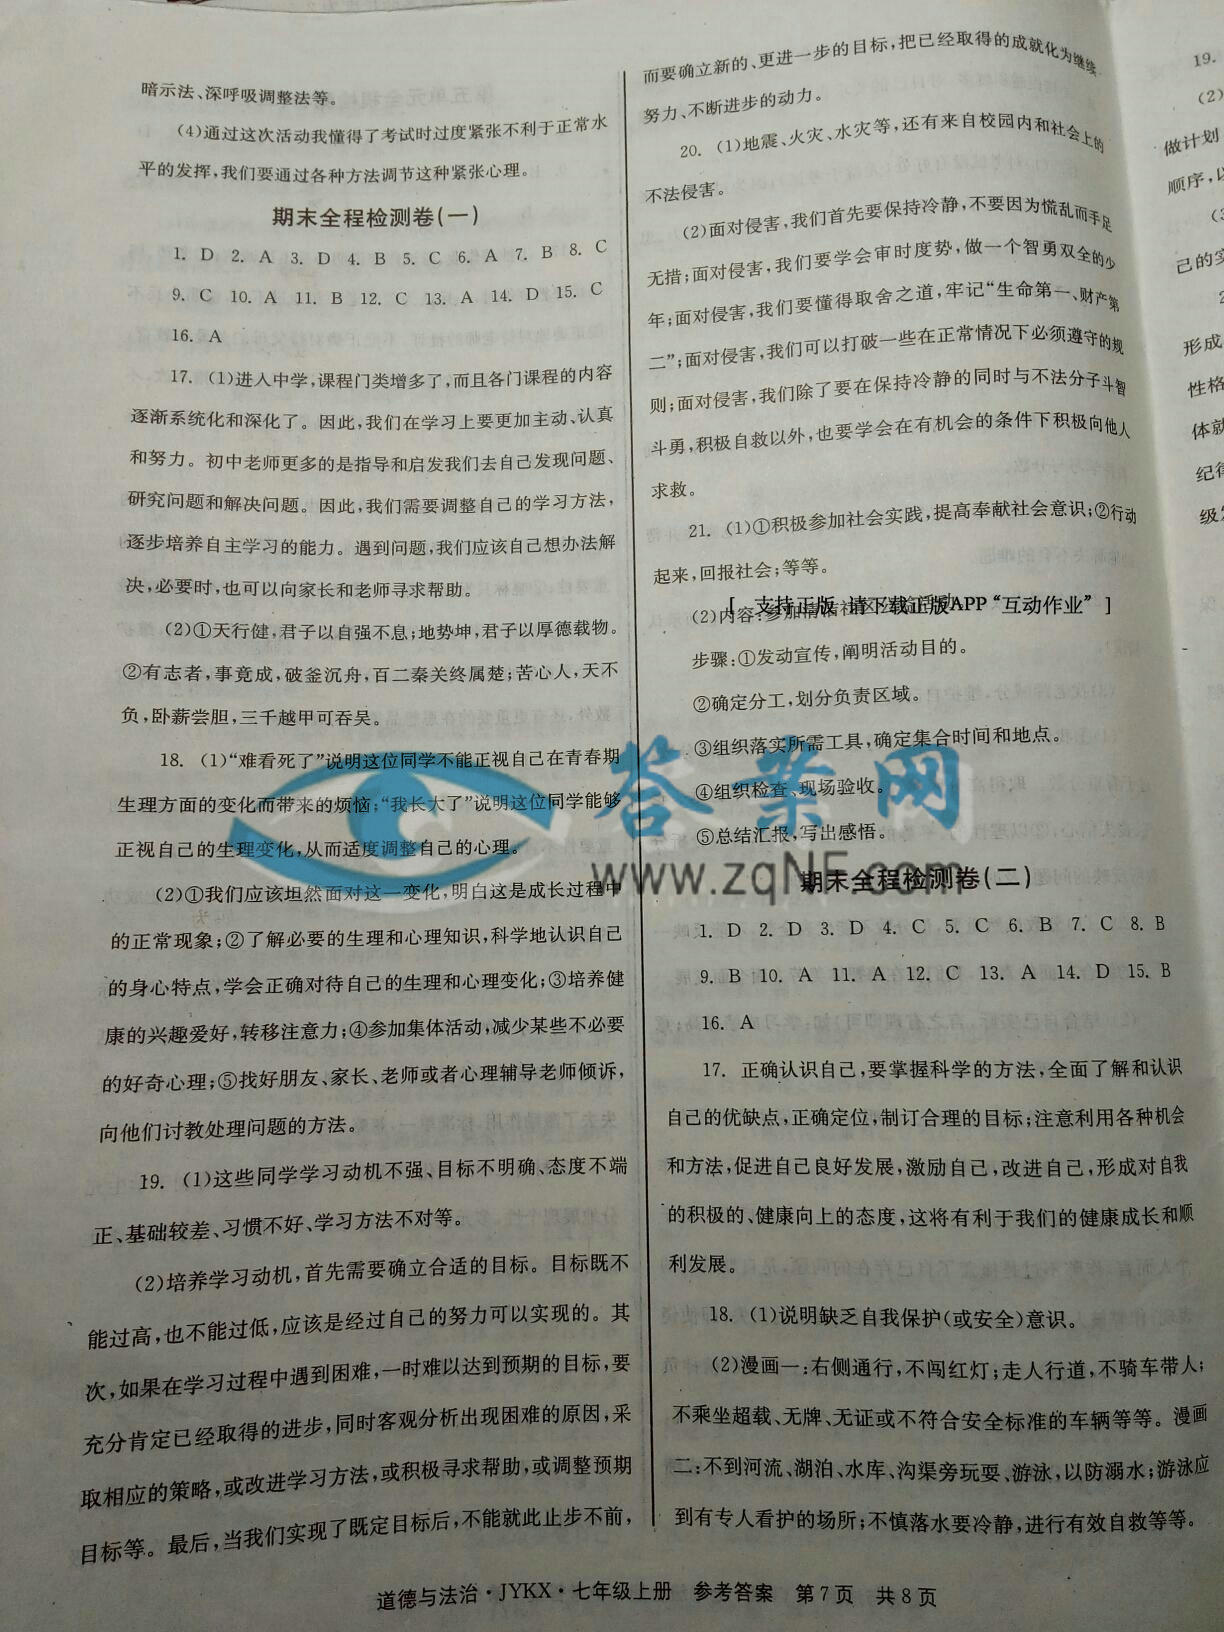 暗示法、深呼吸调整法等。
(4)通过这次活动我懂得了考试时过度紧张不利于正常水
平的发挥,我们要通过各种方法调节这种紧张心理。
期末全程检测卷(一)
1. D 2. A 3. D 4. B 5. C 6. A 7. B 8. C
9. C 10. A 11. B 12. C 13. A 14. D 15. C
16. A
17. (1)进入中学,课程门类增多了,而且各门课程的内容
逐渐系统化和深化了。因此,我们在学习上要更加主动、认真
和努力。初中老师更多的是指导和启发我们去自己发现问题、
研究问题和解决问题。因此,我们需要调整自己的学习方法,
逐步培养自主学习的能力。遇到问题,我们应该自己想办法解
决,必要时,也可以向家长和老师寻求帮助。
(2)①天行健,君子以自强不息;地势坤,君子以厚德载物。
②有志者,事竟成,破釜沉舟,百二秦关终属楚;苦心人,天不
负,卧薪尝胆,三千越甲可吞吴。
18. (1)“难看死了”说明这位同学不能正视自己在青春期
生理方面的变化而带来的烦恼;“我长大了”说明这位同学能够
正视自己的生理变化,从而适度调整自己的心理。
(2)①我们应该坦然面对这一变化,明白这是成长过程中
的正常现象;②了解必要的生理和心理知识,科学地认识自己
的身心特点,学会正确对待自己的生理和心理变化;③培养健
康的兴趣爱好,转移注意力;④参加集体活动,减少某些不必要
的好奇心理;⑤找好朋友、家长、老师或者心理辅导老师倾诉,
向他们讨教处理问题的方法。
19. (1)这些同学学习动机不强、目标不明确、态度不端
正、基础较差、习惯不好、学习方法不对等。
(2)培养学习动机,首先需要确立合适的目标。目标既不
能过高,也不能过低,应该是经过自己的努力可以实现的。其
次,如果在学习过程中遇到困难,一时难以达到预期的目标,要
充分肯定已经取得的进步,同时客观分析出现困难的原因,采
取相应的策略,或改进学习方法,或积极寻求帮助,或调整预期
目标等。最后,当我们实现了既定目标后,不能就此止步不前,
而要确立新的、更进一步的目标,把已经取得的成就化为继续
努力、不断进步的动力。
20. (1)地震、火灾、水灾等,还有来自校园内和社会上的
不法侵害。
(2)面对侵害,我们首先要保持冷静,不要因为慌乱而手足
无措;面对侵害,我们要学会审时度势,做一个智勇双全的少
年;面对侵害,我们要懂得取舍之道,牢记“生命第一、财产第
二”;面对侵害,我们可以打破一些在正常情况下必须遵守的规
则;面对侵害,我们除了要在保持冷静的同时与不法分子斗智
斗勇,积极自救以外,也要学会在有机会的条件下积极向他人
求救。
21. (1)①积极参加社会实践,提高奉献社会意识;②行动
起来,回报社会;等等。
[ 支持正版 请下载正版APP“互动作业” ]
(2)内容:参加清洁社区
步骤:①发动宣传,阐明活动目的。
②确定分工,划分负责区域。
③组织落实所需工具,确定集合时间和地点。
④组织检查、现场验收。
⑤总结汇报,写出感悟。
答案网
www.zqNF.com
期末全程检测卷(二)
1. D 2. D 3. D 4. C 5. C 6. B 7. C 8. B
9. B 10. A 11. A 12. C 13. A 14. D 15. B
16. A
17. 正确认识自己,要掌握科学的方法,全面了解和认识
自己的优缺点,正确定位,制订合理的目标;注意利用各种机会
和方法,促进自己良好发展,激励自己,改进自己,形成对自我
的积极的、健康向上的态度,这将有利于我们的健康成长和顺
利发展。
18. (1)说明缺乏自我保护(或安全)意识。
(2)漫画一:右侧通行,不闯红灯;走人行道,不骑车带人;
不乘坐超载、无牌、无证或不符合安全标准的车辆等等。漫画
二:不到河流、湖泊、水库、沟渠旁玩耍、游泳,以防溺水;游泳应
到有专人看护的场所;不慎落水要冷静,进行有效自救等等。
19.
(2)
做计划
顺序,以
(3
己的实
2
形成
性格
体就
纪律
级
道德与法治·JYKX·七年级上册 参考答案 第7页 共8页